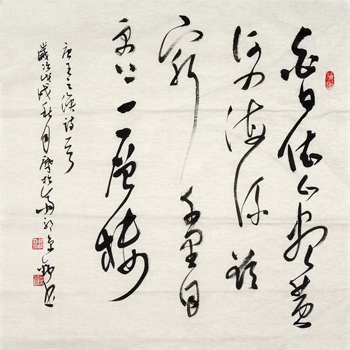 白日依山尽黄
河入海流欲
穷千里目
更上一层楼
唐王之涣诗一首
歲次戊戌秋月